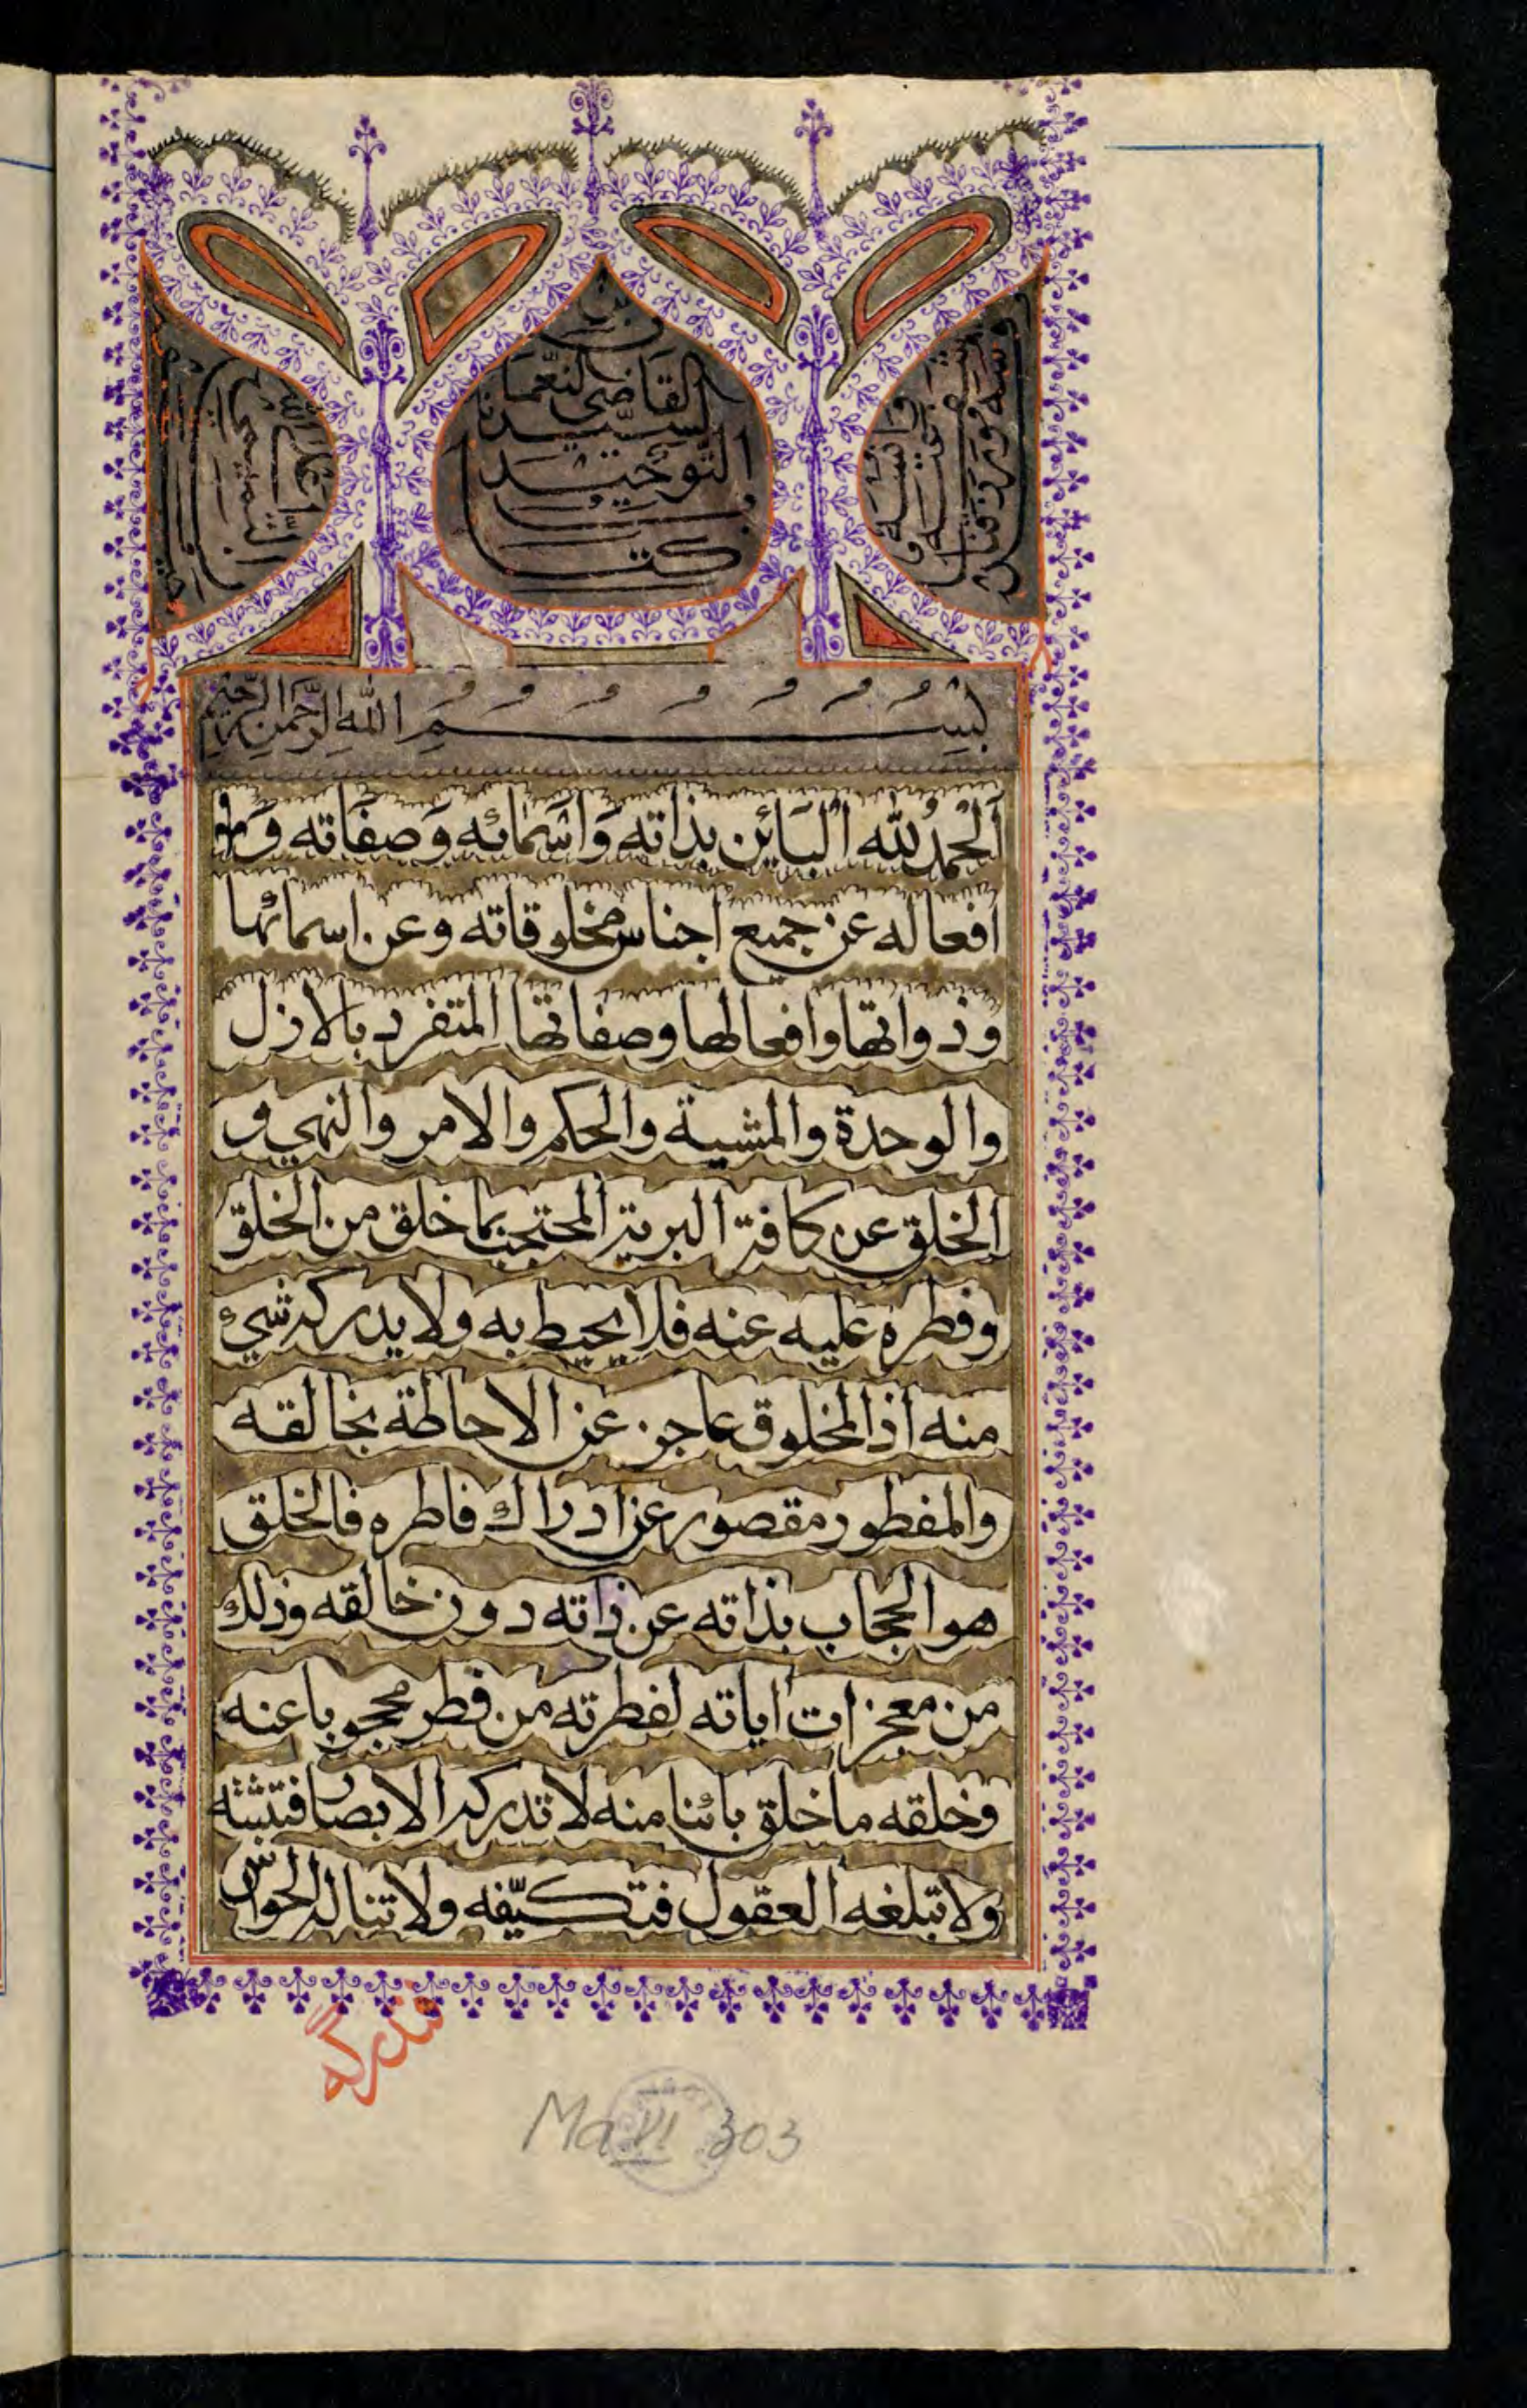 كتاب
التوحيد
لسيدنا
القاضي النعمان
بن
بسم الله الرحمن الرحيم
اَلْحمدُ لله البَائن بذاته وَاسَمائه وَصفَاته وَ
افعاله عن جميع اجناس مخلوقاته وعن اسمائها
وذواتها وافعالها وصفاتها المتفرد بالازل
والوحدة والمشية والحكم والامر والنهي و
الخلق عن كافة البرية المحتجب بما خلق من الخلق
وفطره عليه عنه فلا يحيط به ولا يدركه شيء
منه اذ المخلوق عاجز عن الاحاطة بخالقه
والمفطور مقصور عن ادراك فاطره فالخلق
هو الحجاب بذاته عن ذاته دون خالقه وذلك
من معجزات اياته لفطرته من فطر محجوبا عنه
وخلقه ما خلق بائنا منه لا تدركه الابصار فتثبته
ولا تبلغه العقول فتكيّفه ولا تناله الحواسّ
فتدركه
Ma VI 303